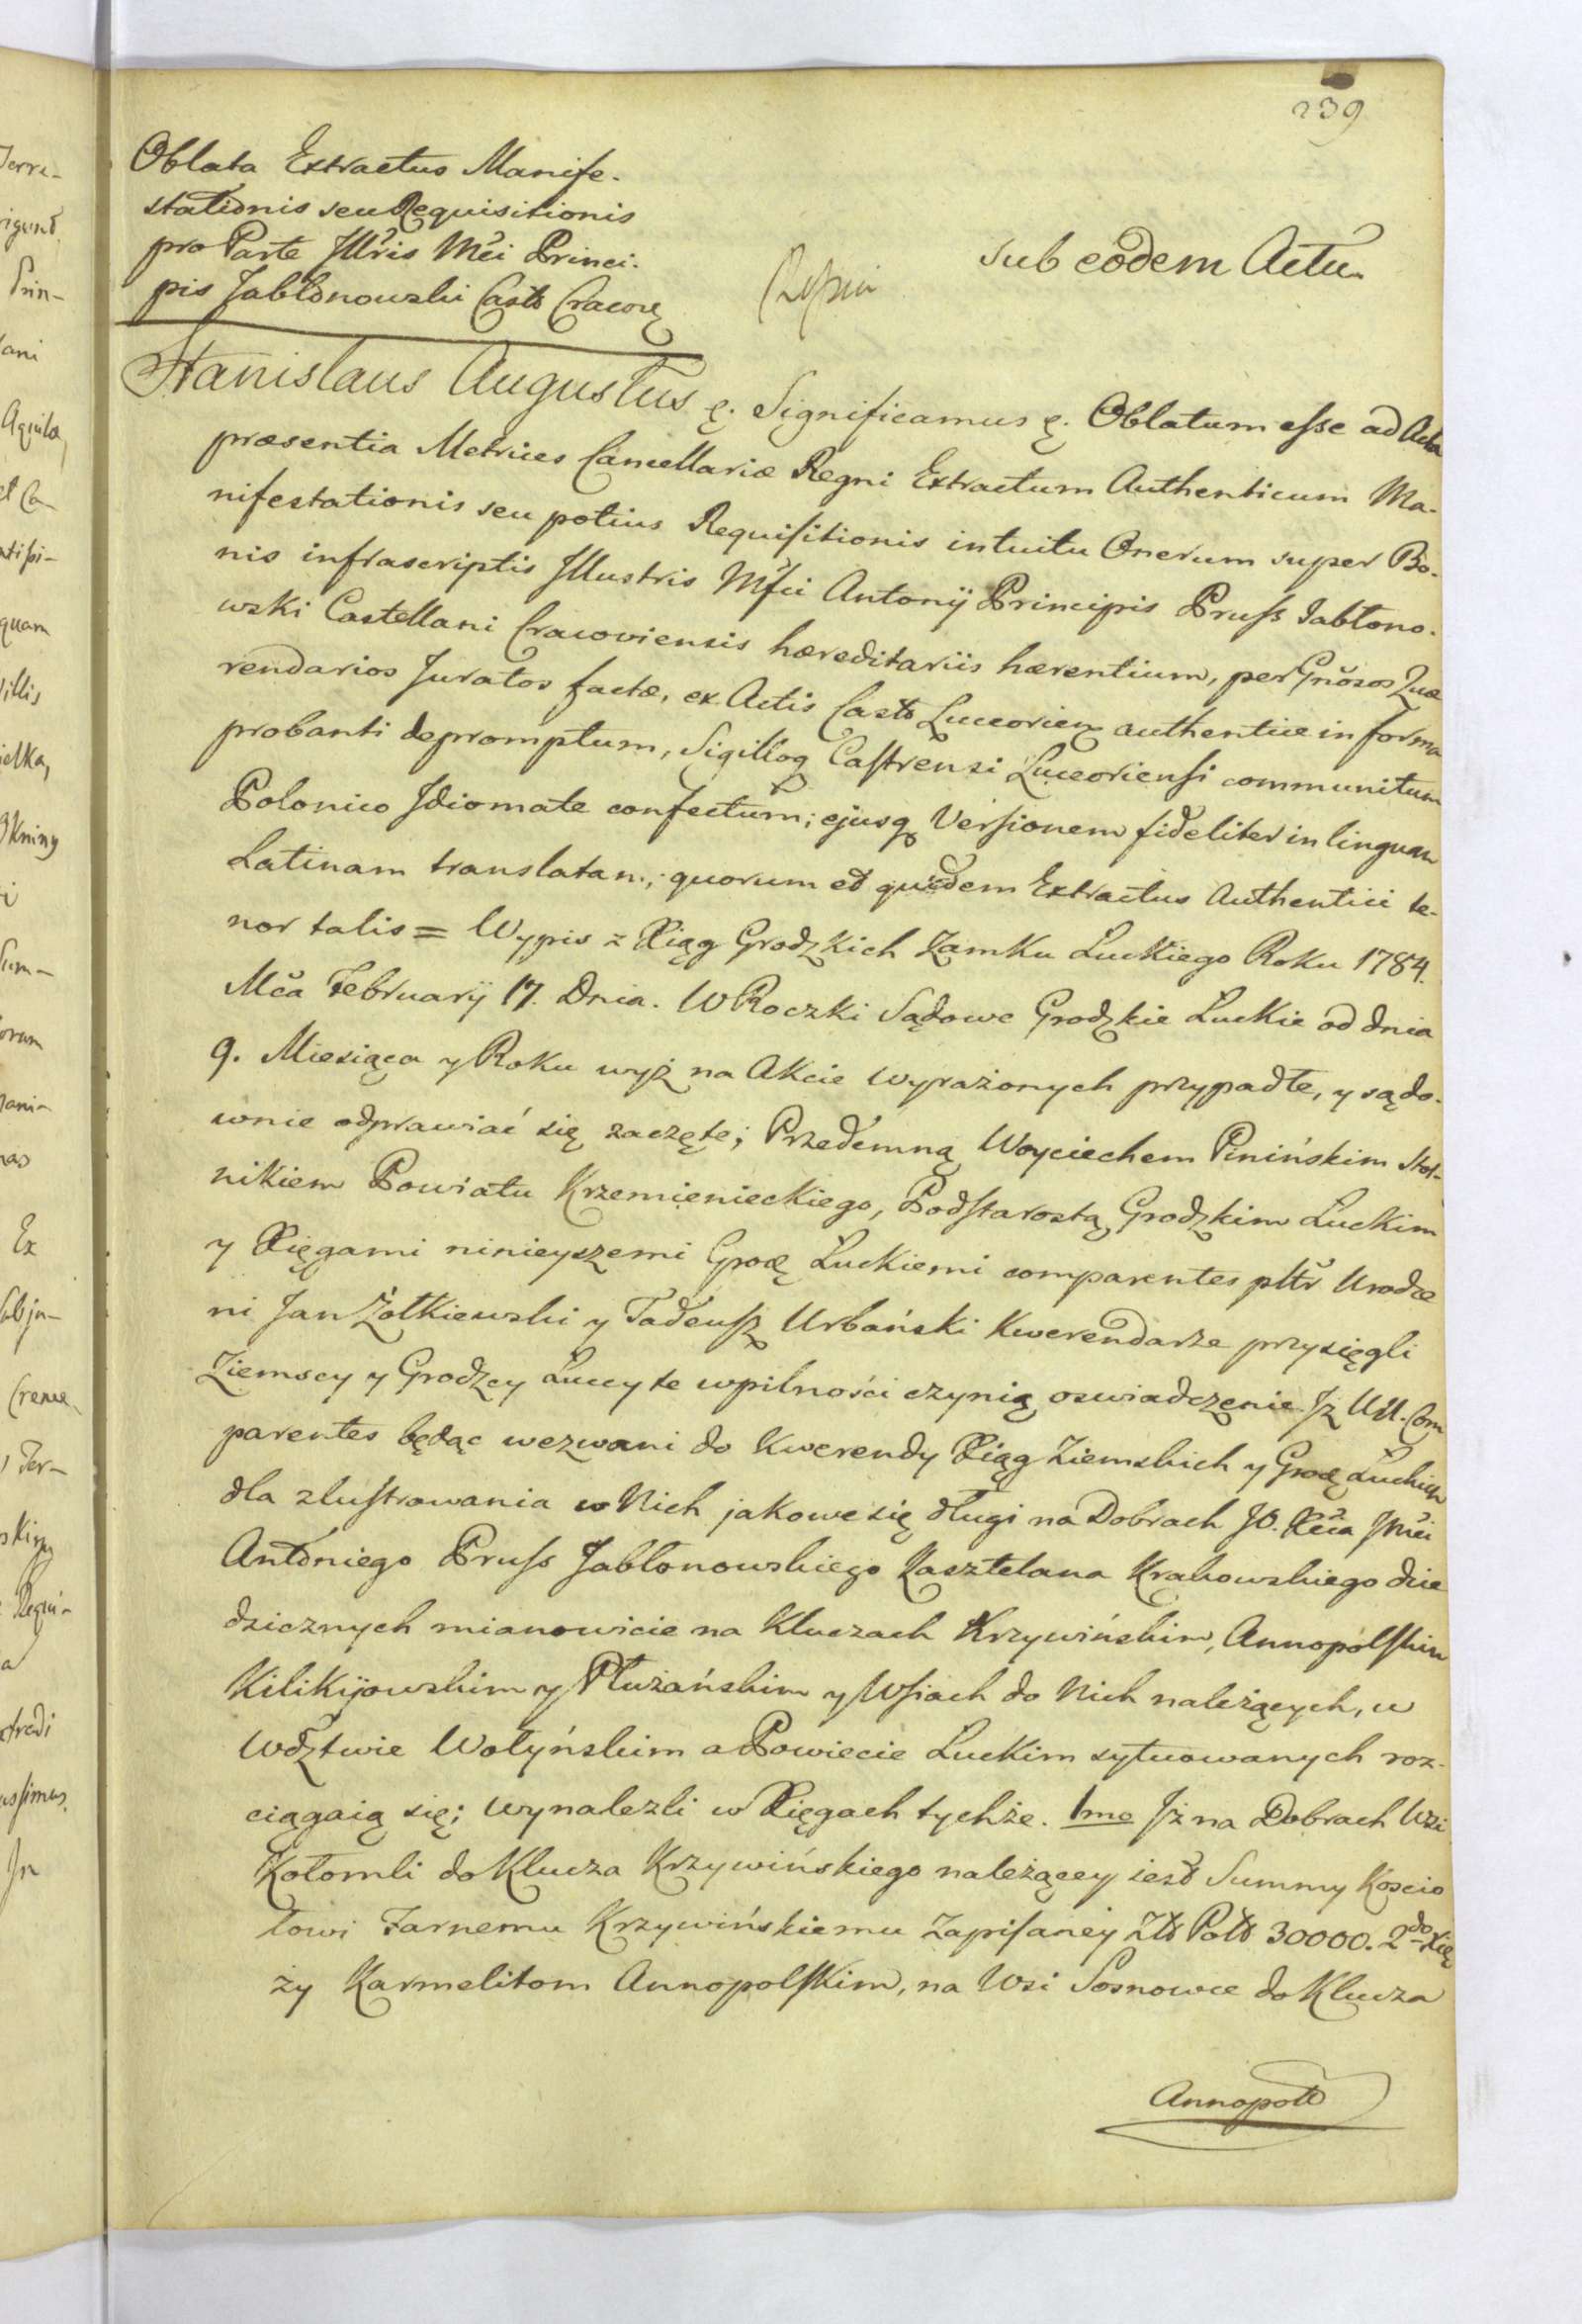 239
Oblata Extractus Manife-
stationis seu Requisitionis
pro Parte Jllris Mci Princi-
pis Jabłonowski Castt Cracovę
sub eodem Actu
Stanislaus Augustus ę. Significamus ę. Oblatum esse ad Acta
præsentia Metrices Cancellariæ Regni Extractum Authenticum Ma-
nifestationis seu potius Requisitionis intuitu Onerum super Bo-
nis infrascriptis Jllustris Mfci Antonij Principis Pruss Jabłono-
wski Castellani Cracoviensis hæreditariis hærentium, per Gnosos Quæ
rendarios Juratos factæ, ex Actis Castt Luceorien authentice in forma
probanti depromptum, Sigilloq Castrensi Luceoriensi communitum
Polonico Jdiomate confectum; ejusq Versionem fideliter in linguam
Latinam translatam; quorum et quidem Extractus Authentici te-
nor talis = Wypis z Xiąg Grodzkich Zamku Luckiego Roku 1784.
Mca February 17. Dnia. W Roczki Sądowe Grodzkie Luckie od dnia
9. Miesiąca y Roku wyż na Akcie wyrażonych przypadłe, y sądo-
wnie odprawiać się zaczęte; Przedemną Woyciechem Pinińskim Stol-
nikiem Powiatu Krzemienieckiego, Podstarostą Grodzkim Luckim
y Xięgami ninieyszemi Grodę Luckiemi comparentes pltr Urodze
ni Jan Żołkiewski y Tadeusz Urbański Kwerendarze przysięgli
Ziemscy y Grodzcy Luccy te wpilności czynią oswiadczenie Jż UU. Com
parentes będąc wezwani do Kwerendy Xiąg Ziemskich y Grodę Luckich
dla zlustrowania w Nich jakowe się długi na Dobrach JO. Xcia Jmci
Antoniego Pruss Jabłonowskiego Kasztelana Krakowskiego dzie
dzicznych mianowicie na Kluczach Krzywińskim, Annopolskim
Kilikijowskim y Płużańskim y Wsiach do Nich należących, w
Wdztwie Wołyńskim a Powiecie Luckim sytuowanych roz-
ciągaią się; wynalezli w Xięgach tychże. 1mo Jż na Dobrach Wsi
Kołomli do Klucza Krzywińskiego należącey iest Summy Koscio
łowi Farnemu Krzywińskiemu Zapisaney Złt Polt 30000. 2do Xię
ży Karmelitom Annopolskim, na Wsi Sosnowce do Klucza
Annopolt